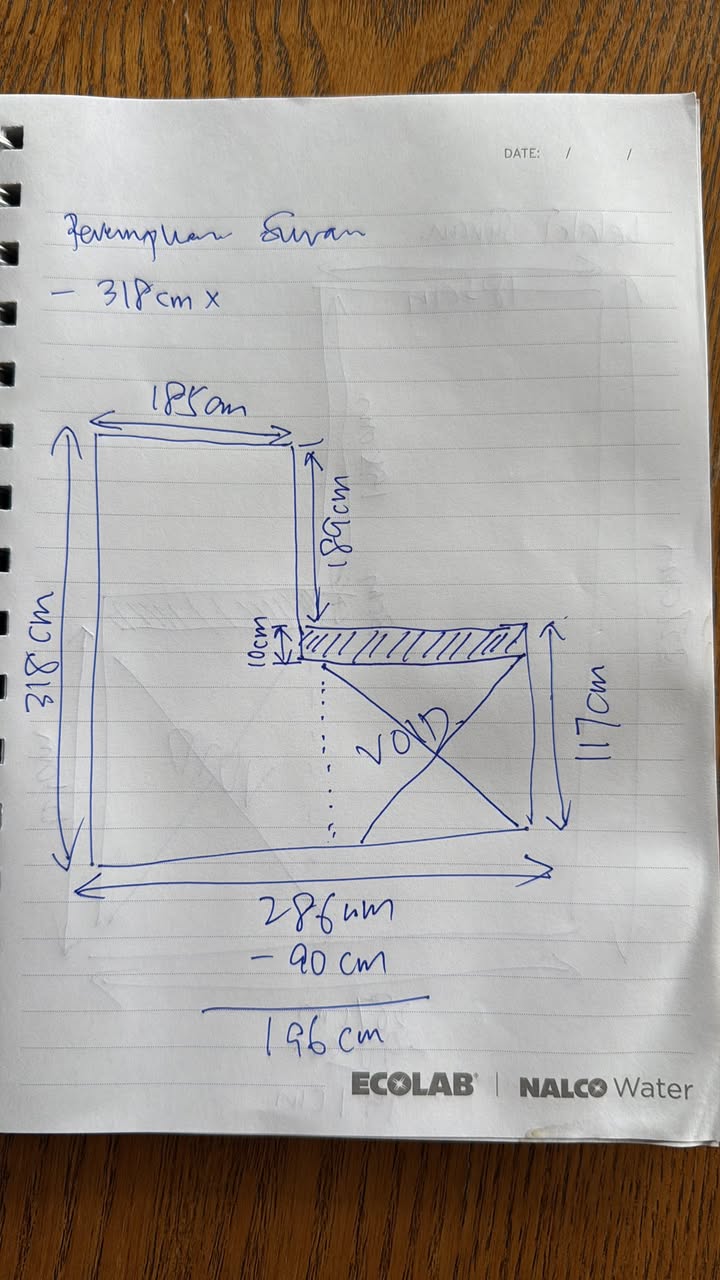 DATE: / /
Perempuan Surau
- 318cm x
185cm
189cm
10cm
318cm
VOID
117cm
286cm
- 90 cm
196 cm
ECOLAB® | NALCO Water